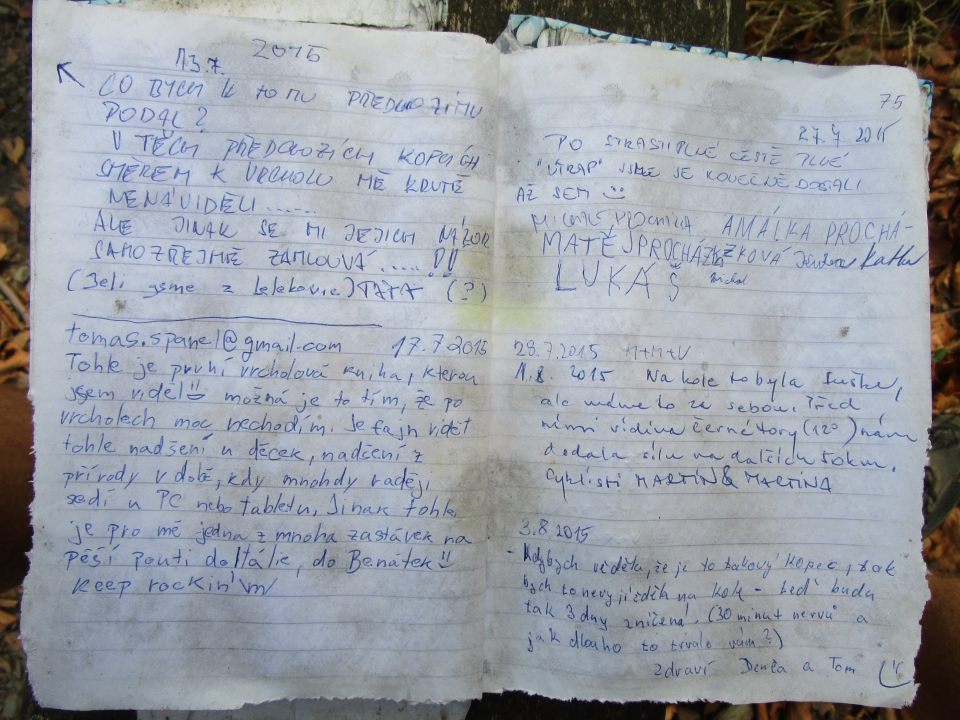 13.7. 2015
CO BYCH K TOMU PŘEDLOZÍMU
PODAL?
V TĚCH PŘEDLOZÍCH KOPCÍCH
SMĚREM K VRCHOLU MĚ KRUTĚ
NENÁVIDĚLI......
ALE JINAK SE MI JEJICH NÁZOR
SAMOZŘEJMĚ ZAMLOUVÁ.....!!
(Jeli jsme z Lelekovic) TÁTA (?)
tomas.spanel@gmail.com 17.7.2015
Tohle je první vrcholová kniha, kterou
jsem viděl možná je to tím, že po
vrcholech moc nechodím. Je fajn vidět
tohle nadšení u děcek, nadšení z
přírody v době, kdy mnohdy raději
sedí u PC nebo tabletu. Jinak tohle
je pro mě jedna z mnoha zastávek na
pěší pouti do Itálie, do Benátek
keep rockin' \m/
75
27.7 2015
PO STRASTIPLNÉ CESTĚ PLNÉ
"ÚTRAP" JSME SE KONEČNĚ DOSTALI
AŽ SEM
AMÁLKA PROCHÁ-
MATĚJ PROCHÁZKA ZKOVÁ Katka
LUKÁŠ Michal
29.7.2015 M+M+V
1.8. 2015 Na kole to byla fuška,
ale máme to za sebou. Před
námi vidina Černé hory (12°) nám
dodala sílu na dalších
cyklisti MARTIN & MARTINA
3.8.2015
- Kdybych věděla, že je to takový kopec, tak
bych to nevyjížděla na kole - teď budu
tak 3 dny zničená. (30 minut nervů a
jak dlouho to trvalo vám?)
zdraví Denča a Tom